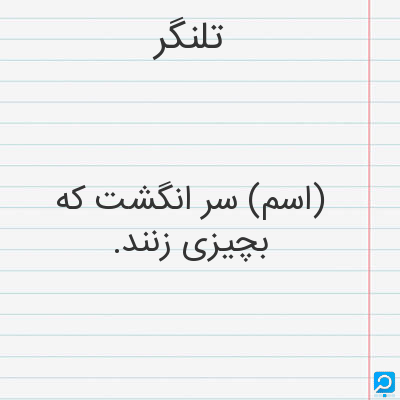 تلنگر
(اسم) سر انگشت که
بچیزی زنند.